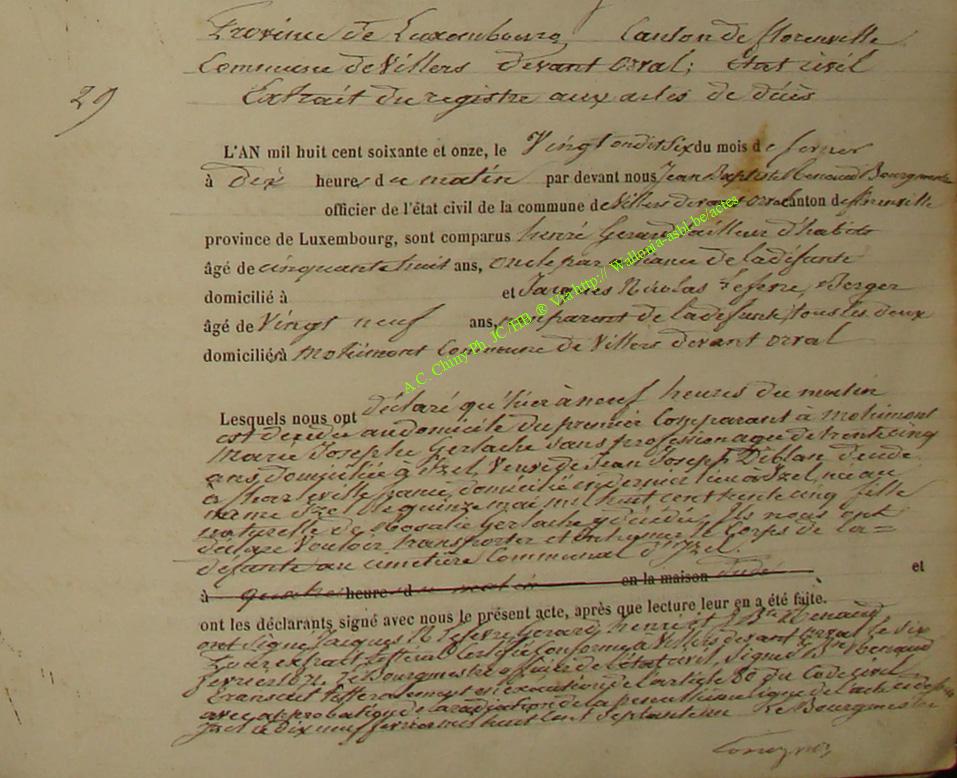 Province de Luxembourg Canton de florenville
Commune de Villers devant orval; état civil
29
Extrait du registre aux actes de décès
L'AN mil huit cent soixante et onze, le Vingt du mois de fevrier
à Dix heures du matin par devant nous Jean Baptiste Renaud Bourgmestre
officier de l'état civil de la commune de Villers devant orval canton de florenville
province de Luxembourg, sont comparus henri Gerard tailleur d'habits
âgé de cinquante huit ans, oncle par de la défunte
domicilié à et Jacques Nicolas Lefevre, Berger
âgé de Vingt neuf ans, non parent de la défunte, tous les deux
domiciliés à Mohimont Commune de Villers devant orval
A.C. Chiny Ph. JC/HB ® Via http:// Wallonia-asbl.be/actes
Lesquels nous ont déclaré qu'hier à neuf heures du matin
est décédée au domicile du premier Comparant à mohimont
Marie Josephe Gerlache sans profession agée de trente cinq
ans domiciliée à Izel Veuve de Jean Joseph Diblan décédé
à Charleville domicilié en dernier lieu à Izel, née au
même Izel le quinze mai mil huit cent trente cinq fille
naturelle de Rosalie Gerlache y décédée, Ils nous ont
déclaré Vouloir transporter et inhumer le Corps de la=
défunte au cimetière Communal d'Izel.
à quatre heures du matin en la maison et
ont les déclarants signé avec nous le présent acte, après que lecture leur en a été faite.
ont signé Jacques N Lefevre, Gerard henri et J Bte Renaud
Pour extrait littéral Certifié Conforme à Villers devant orval le six
fevrier 1871. Le Bourgmestre officier de l'état civil, signé J. Bte Renaud
transcrit littéralement en exécution de l'article 80 du Code civil
avec approbation de la radiation de la ligne de l'acte
fait le Dix neuf fevrier mil huit cent septante un Le Bourgmestre